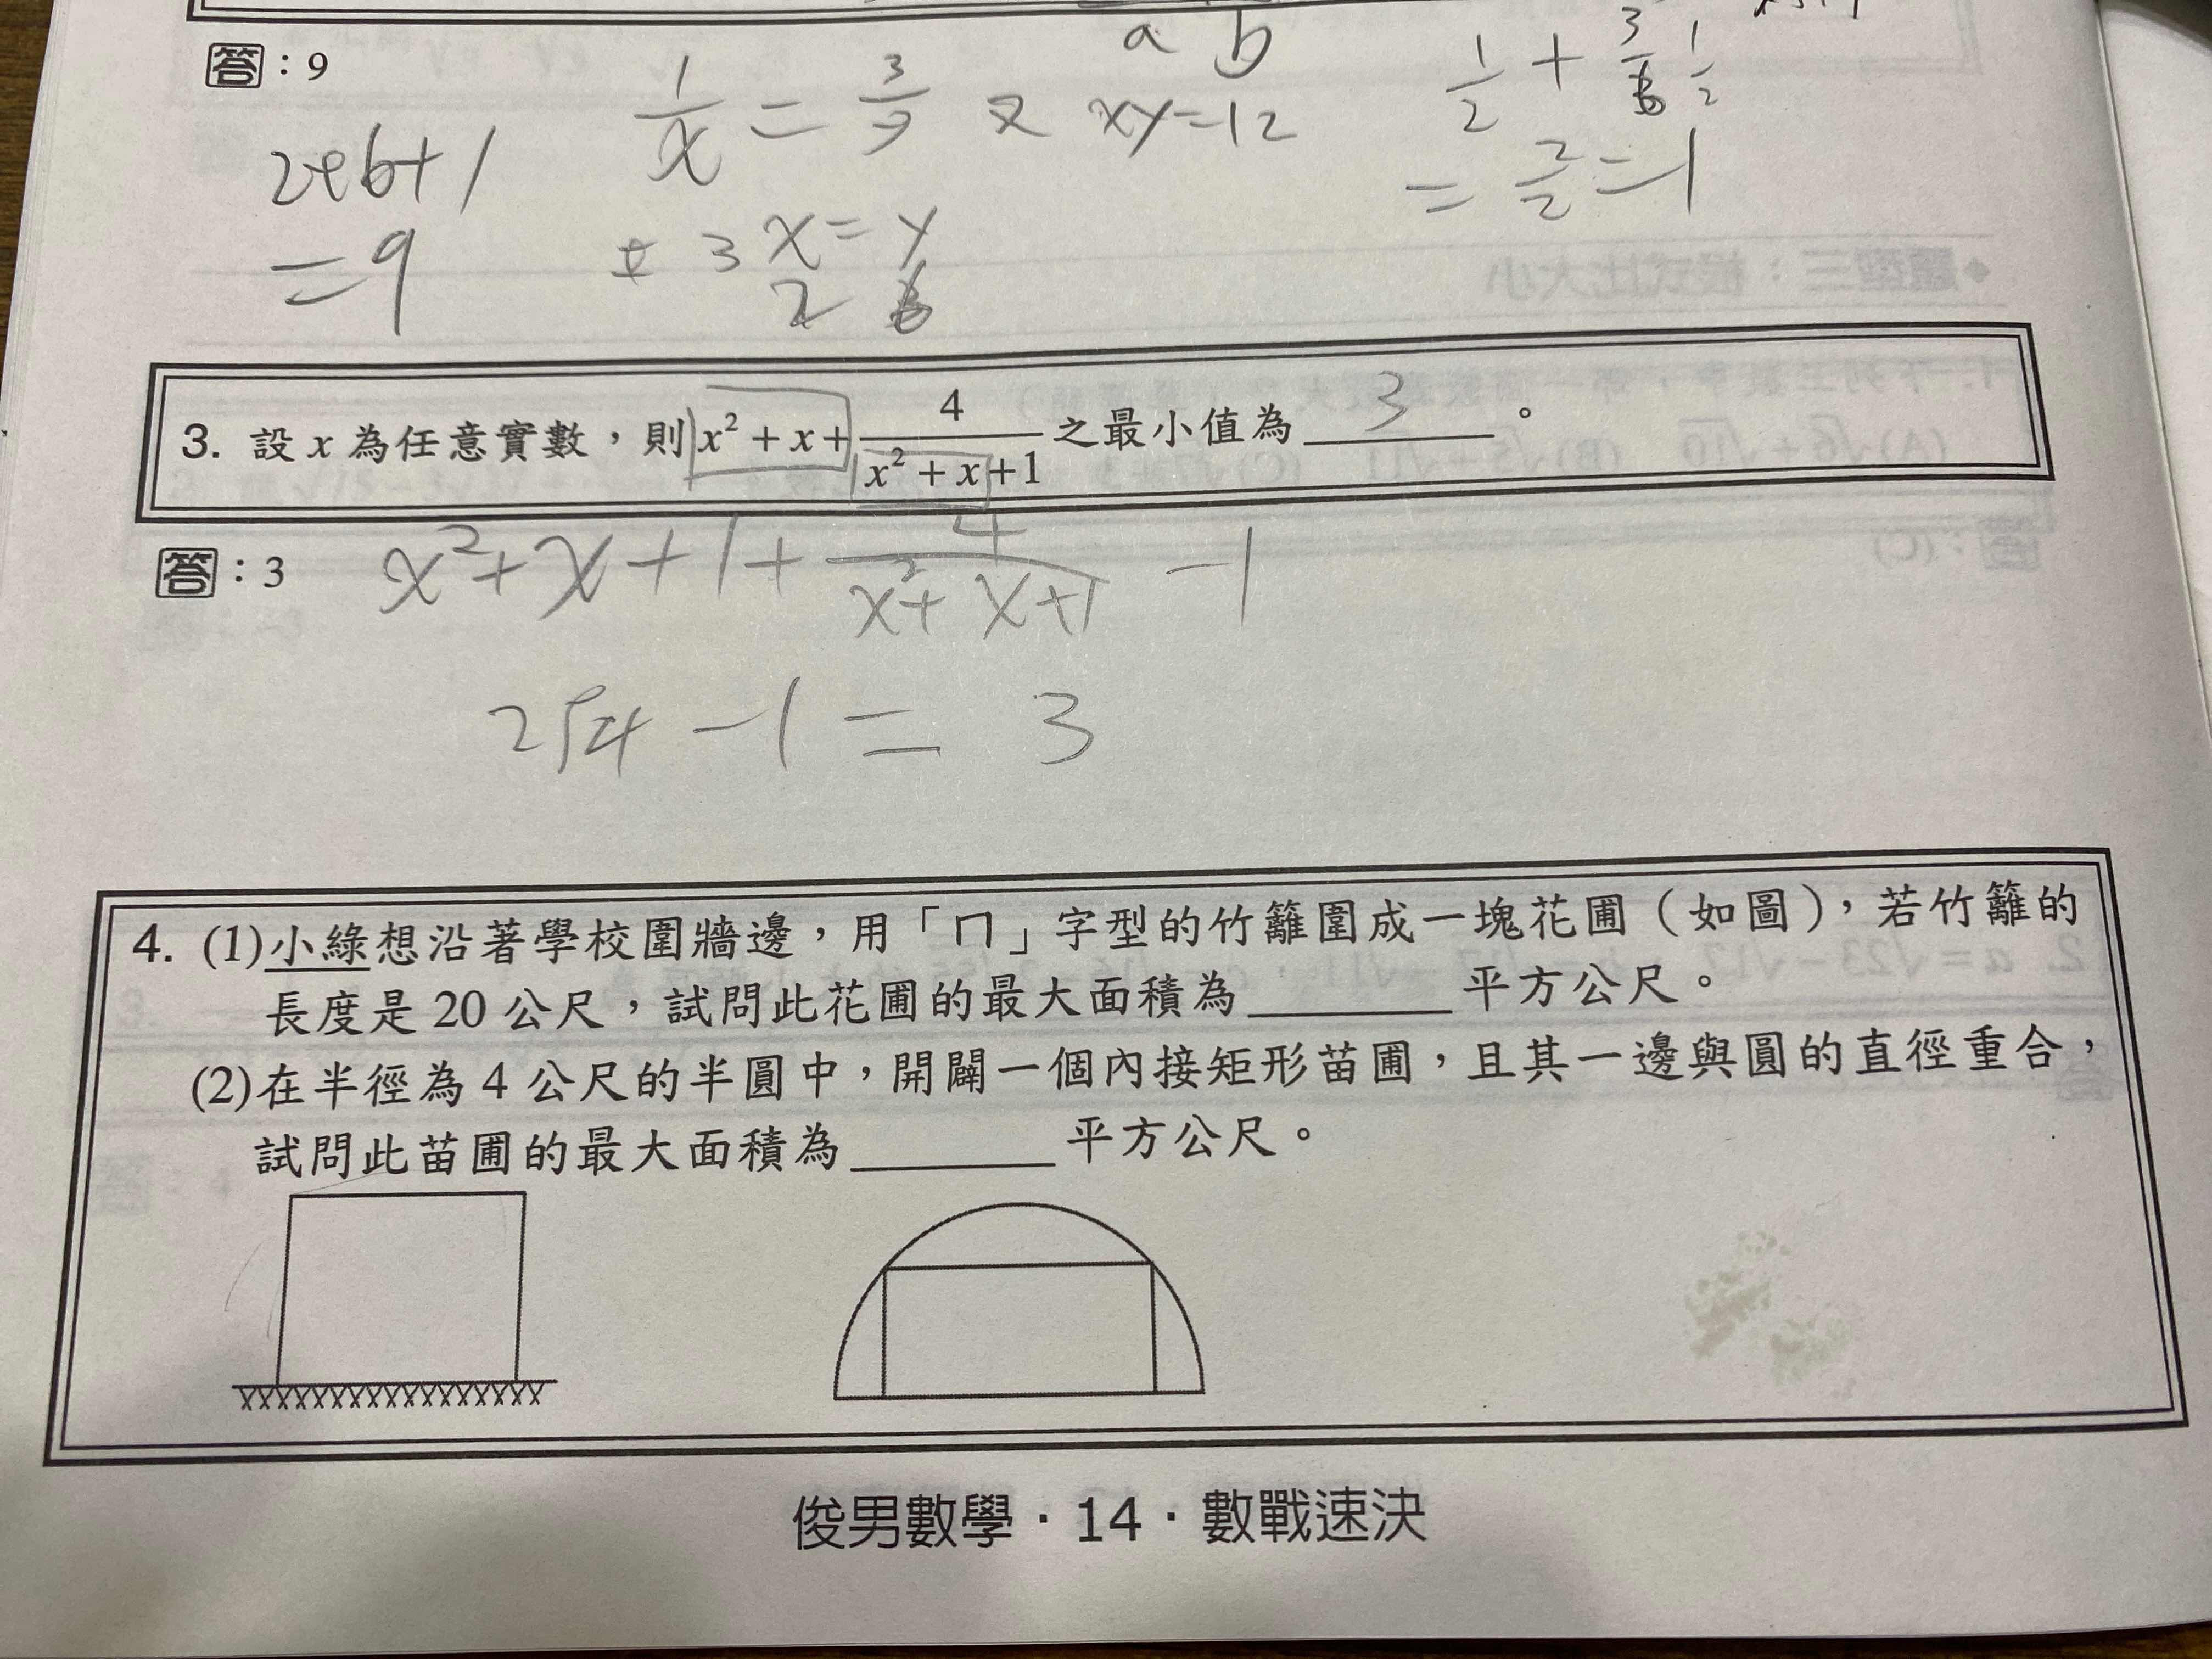 a b
答：9
1/x = 3/y xy=12
1/2 + 3/6 1/2
= 2/2 = 1
2+6+1
=9
3x=y
2 6
3. 設 x 為任意實數，則 x² + x + 4/(x² + x + 1) 之最小值為 3 。
答：3
x² + x + 1 + 4/(x² + x + 1) - 1
2√4 - 1 = 3
4. (1)小綠想沿著學校圍牆邊，用「ㄇ」字型的竹籬圍成一塊花圃（如圖），若竹籬的
長度是 20 公尺，試問此花圃的最大面積為________平方公尺。
(2)在半徑為 4 公尺的半圓中，開闢一個內接矩形苗圃，且其一邊與圓的直徑重合，
試問此苗圃的最大面積為________平方公尺。
俊男數學．14．數戰速決